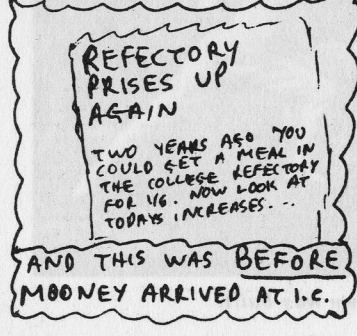 REFECTORY
PRISES UP
AGAIN
TWO YEARS AGO YOU
COULD GET A MEAL IN
THE COLLEGE REFECTORY
FOR 1/6. NOW LOOK AT
TODAYS INCREASES...
AND THIS WAS BEFORE
MOONEY ARRIVED AT I.C.